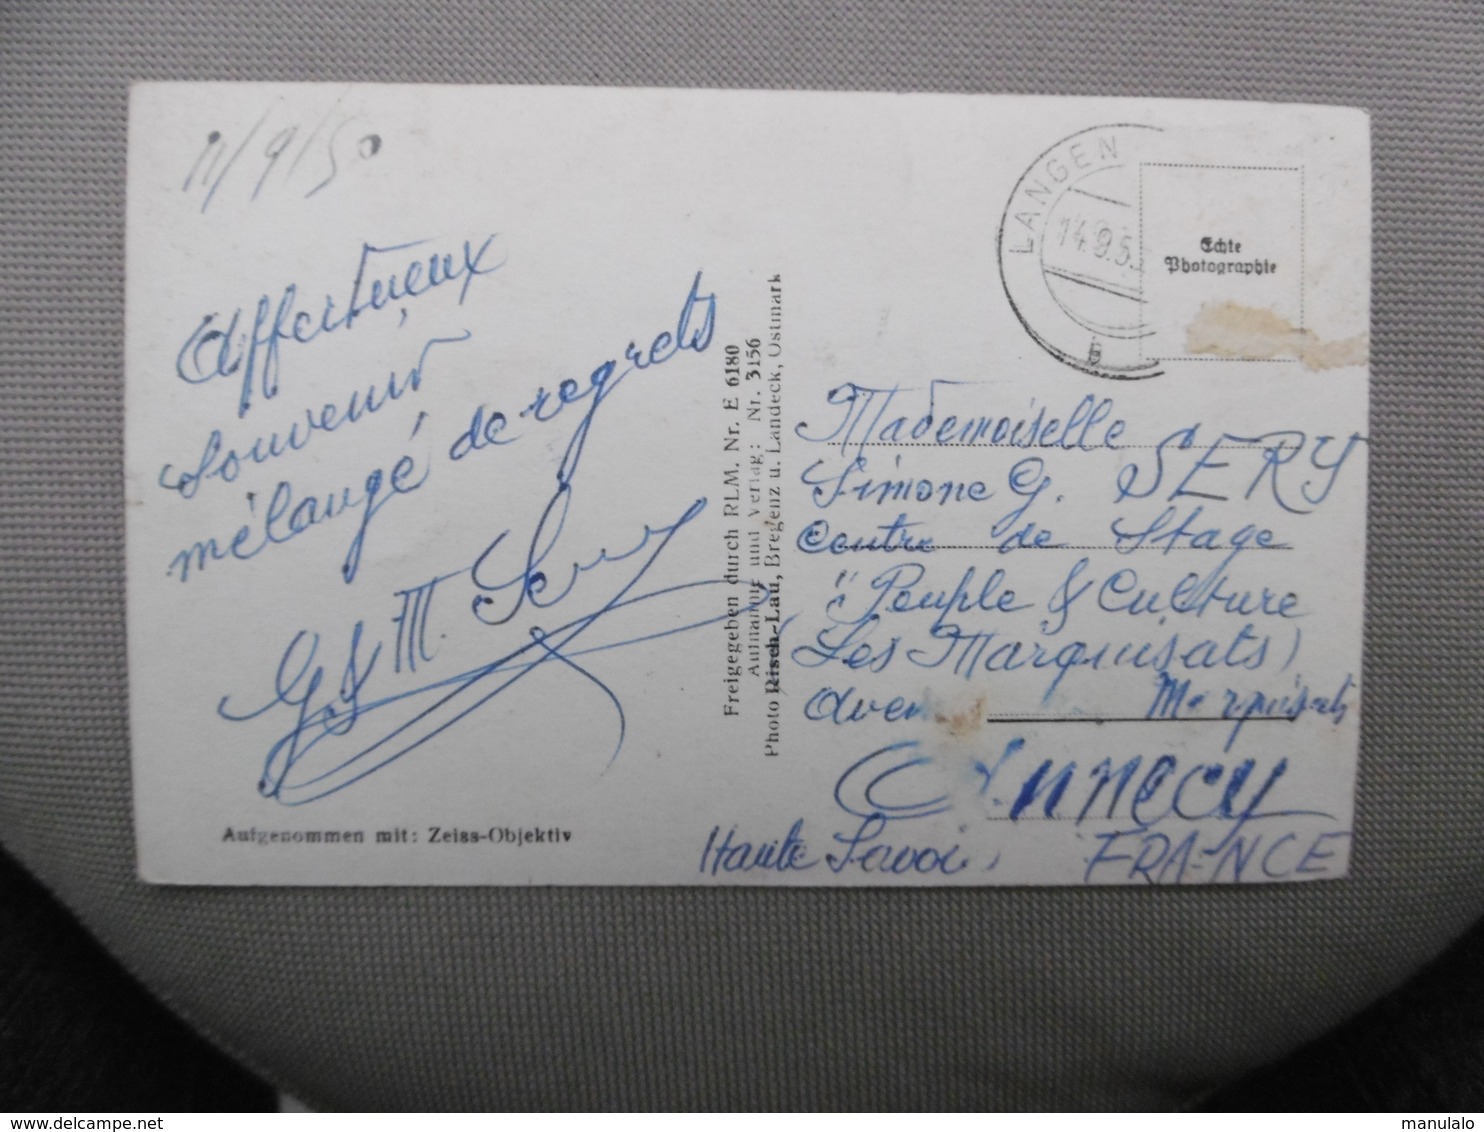 11/9/50
Affectueux
souvenir
mélangé de regrets
G & M. Sery
Aufgenommen mit: Zeiss-Objektiv
Freigegeben durch RLM. Nr. E 6180
Aufnahme und Verlag: Nr. 3156
Photo Risch-Lau, Bregenz u. Landeck, Ostmark
LANGEN
14.9.5
b
Echte
Photographie
Mademoiselle
Simone G. SERY
Centre de Stage
"Peuple & Culture
(Les Marquisats)
Marquisats
ANNECY
Haute Savoie
FRANCE
manulalo